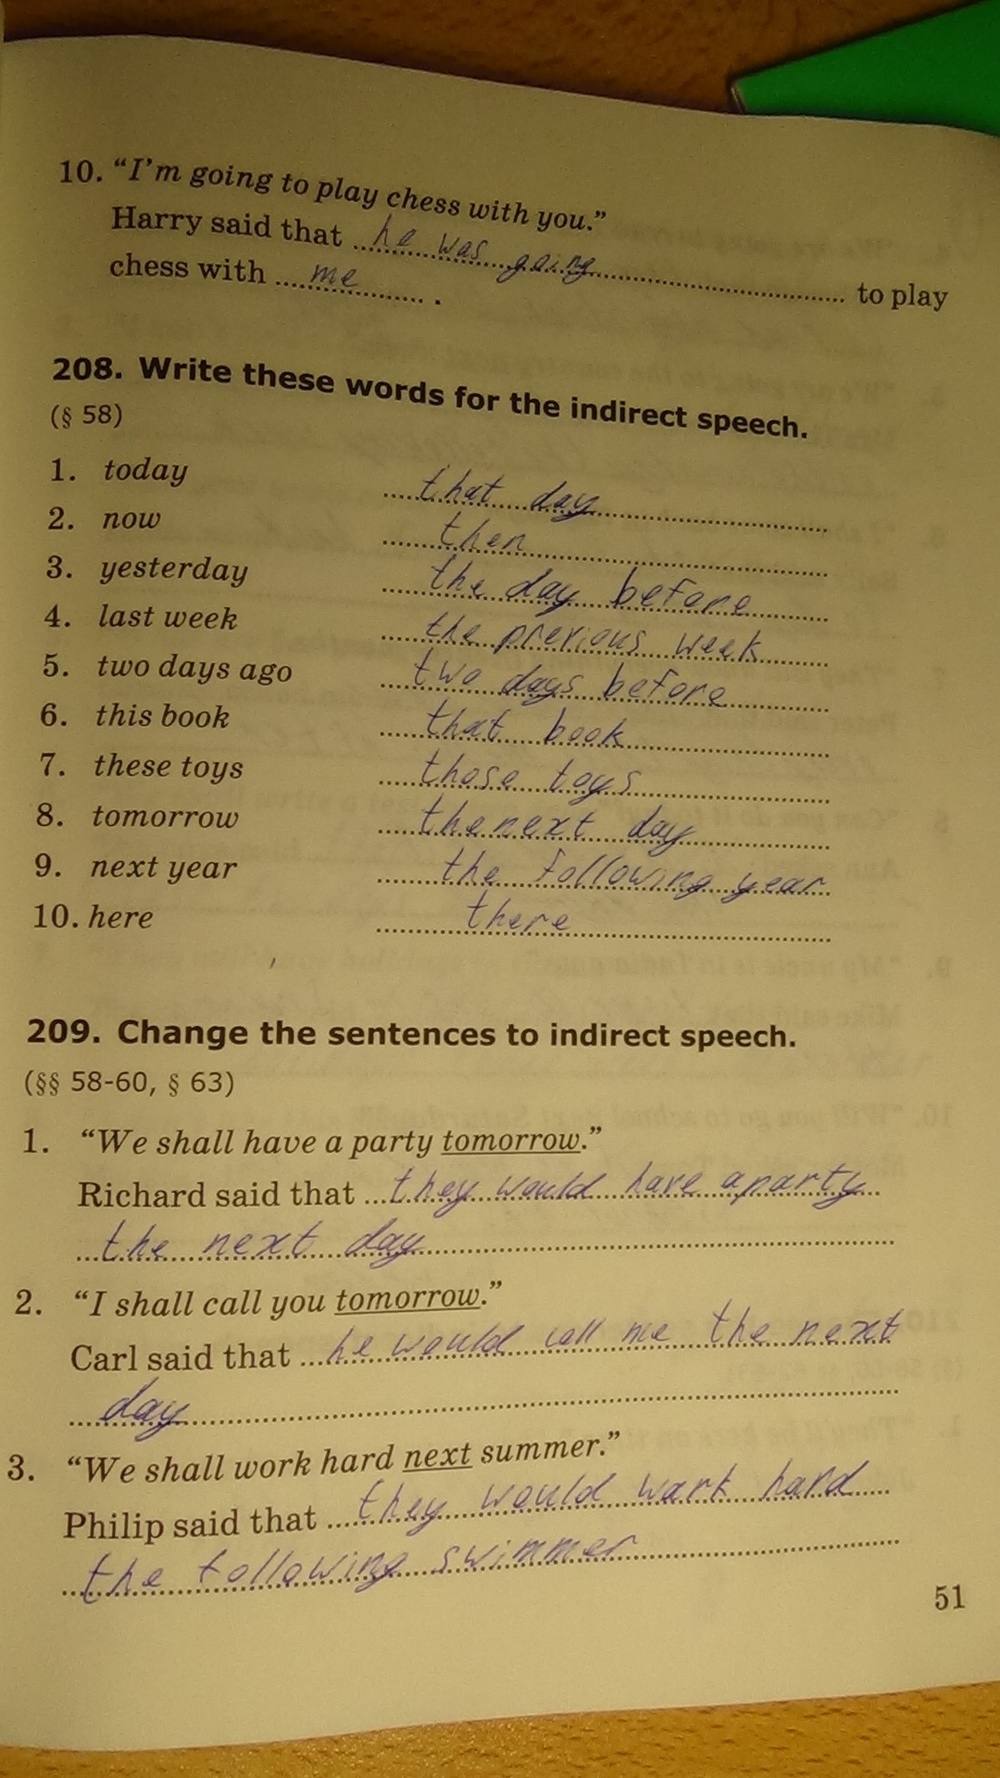 10. “I’m going to play chess with you.”
Harry said that he was going to play
chess with me .
208. Write these words for the indirect speech.
(§ 58)
1. today that day
2. now then
3. yesterday the day before
4. last week the previous week
5. two days ago two days before
6. this book that book
7. these toys those toys
8. tomorrow the next day
9. next year the following year
10. here there
209. Change the sentences to indirect speech.
(§§ 58-60, § 63)
1. “We shall have a party tomorrow.”
Richard said that they would have a party
the next day
2. “I shall call you tomorrow.”
Carl said that he would call me the next
day
3. “We shall work hard next summer.”
Philip said that they would work hard
the following swimmer
51